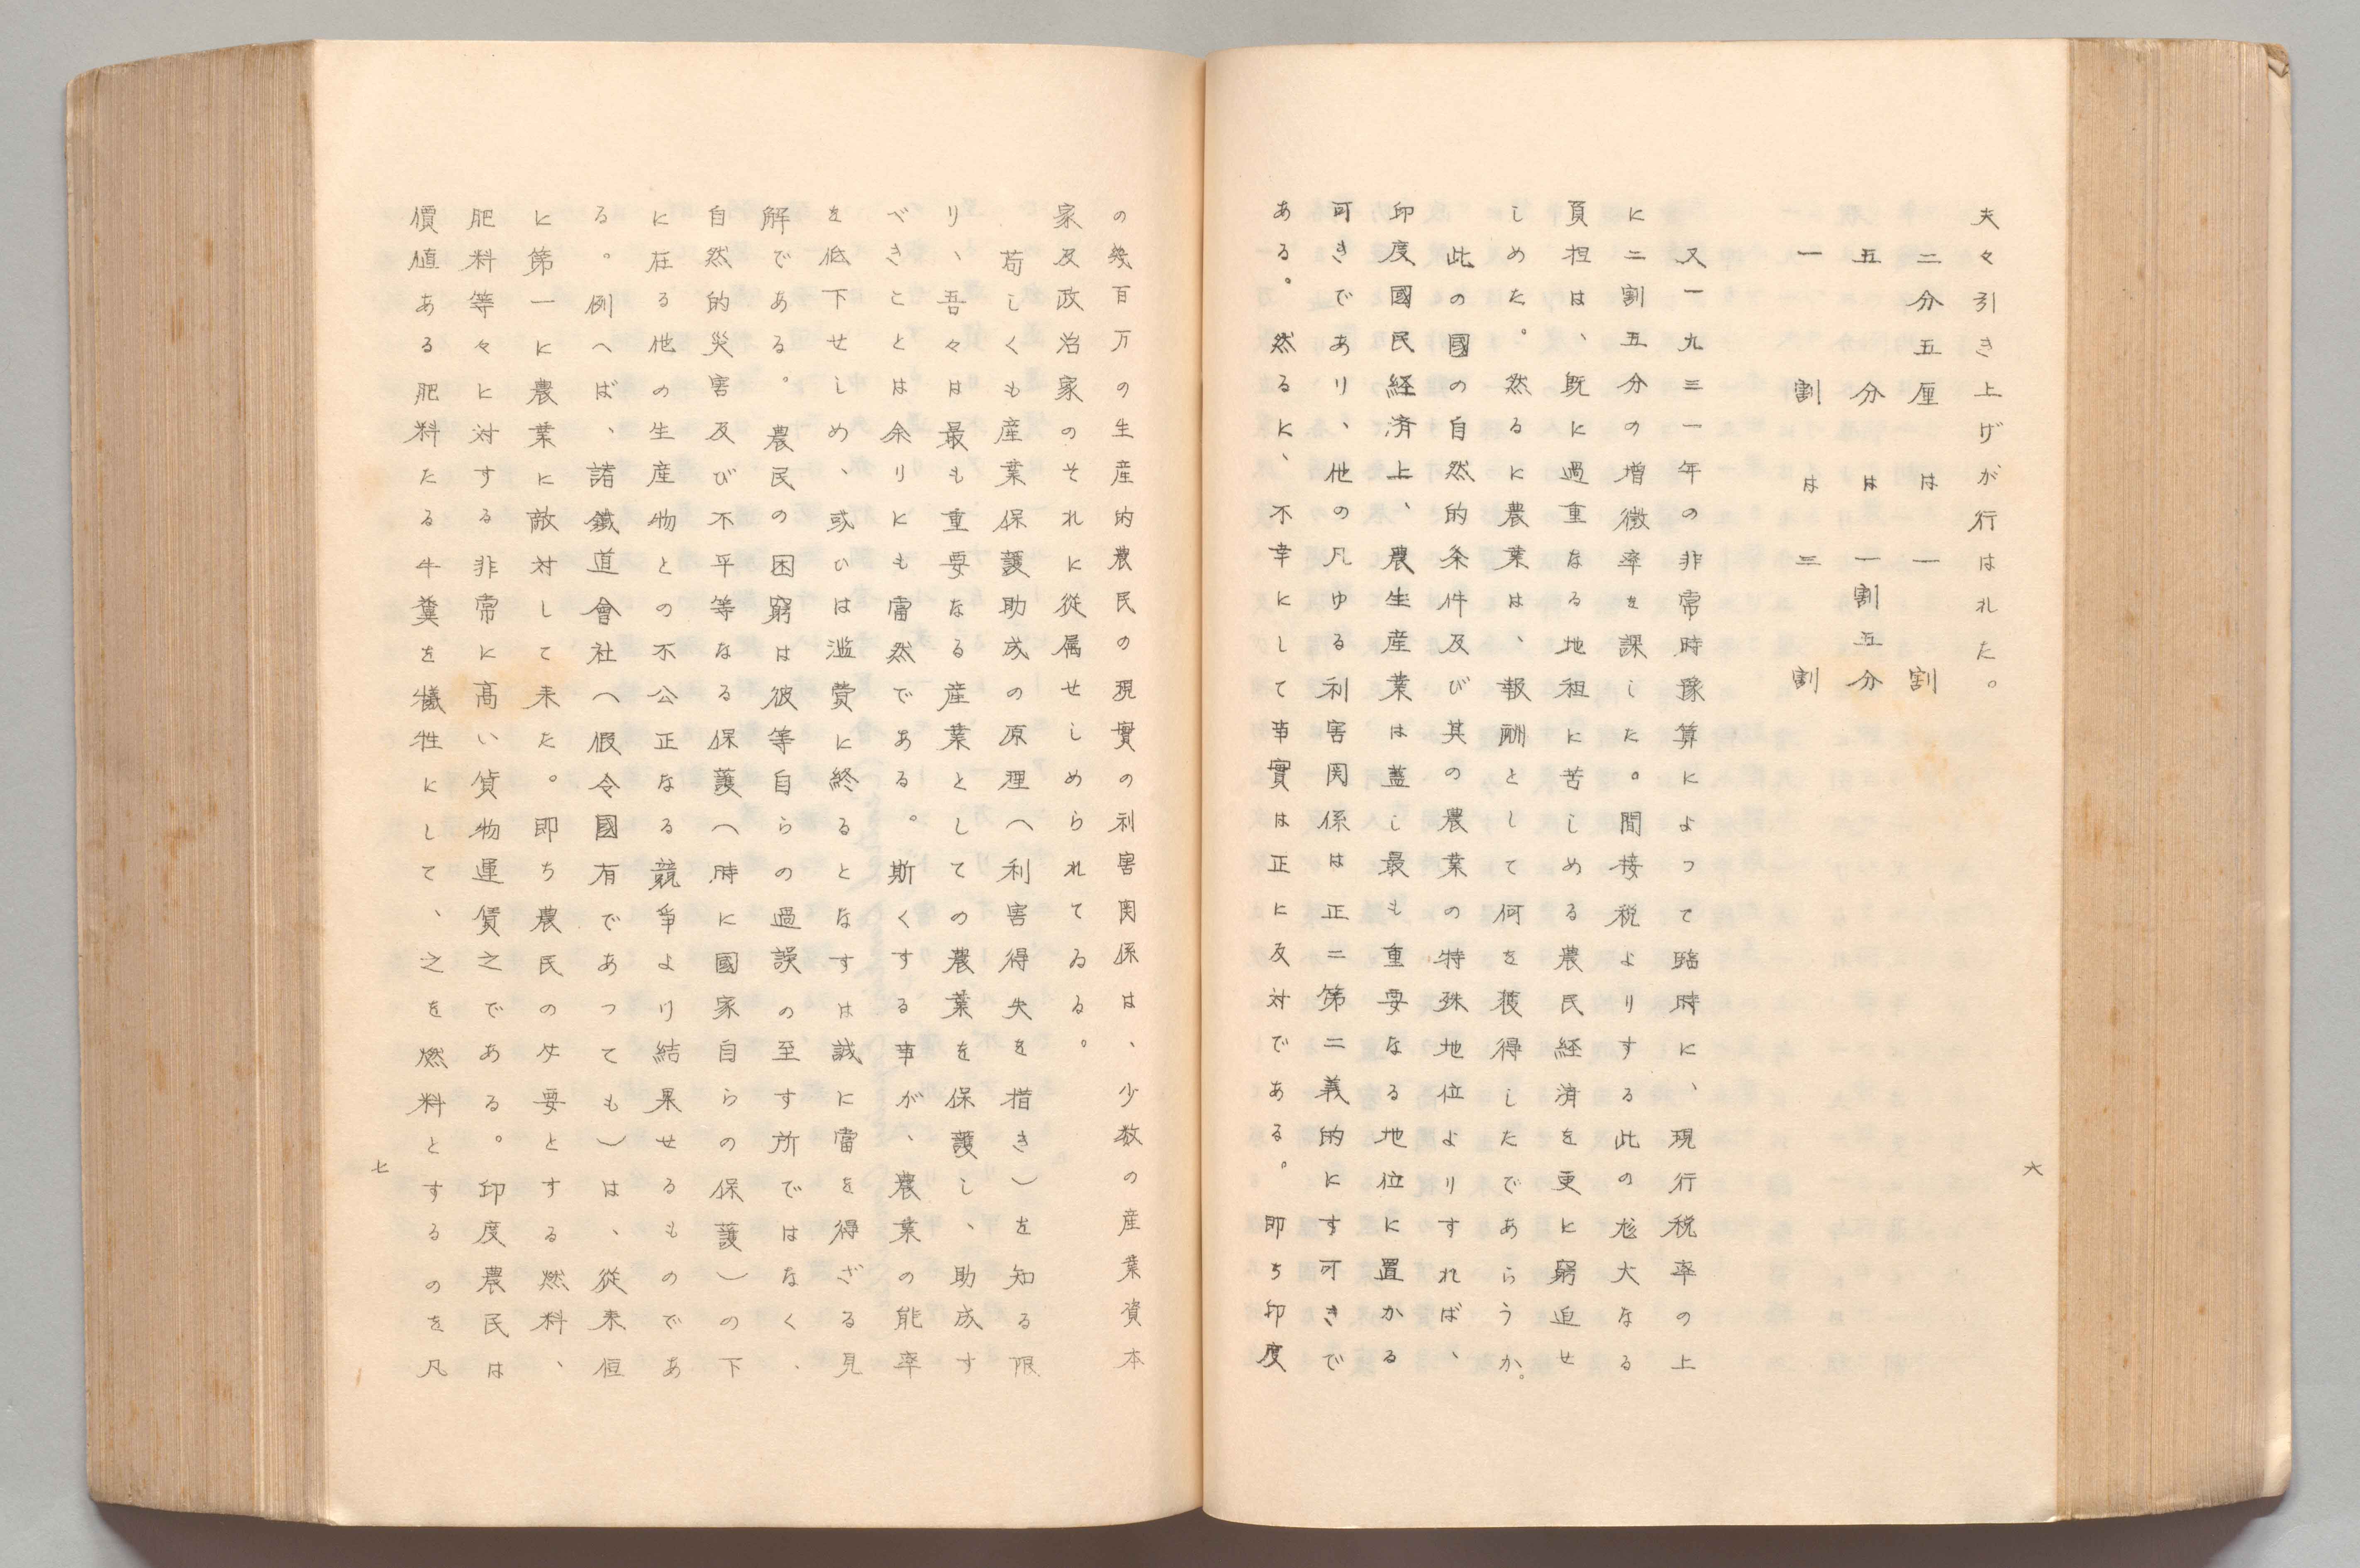 夫々引き上げが行はれた。
二分五厘は一割
五分は一割五分
一割は三割
又一九三一年の非常時豫算によつて臨時に、現行税率の上
に二割五分の増徴率を課した。間接税よりする此の尨大なる
負担は、既に過重なる地租に苦しめる農民経済を更に窮迫せ
しめた。然るに農業は、報酬として何を獲得したであらうか。
此の國の自然的条件及び其の農業の特殊地位よりすれば、
印度國民経済上、農生産業は蓋し最も重要なる地位に置かる
可きであり、他の凡ゆる利害関係は正ニ第二義的にす可きで
ある。然るに、不幸にして事實は正に反対である。即ち印度
六
の幾百万の生産的農民の現實の利害関係は、少数の産業資本
家及政治家のそれに從属せしめられてゐる。
苟しくも産業保護助成の原理(利害得失を措き)を知る限
り、吾々は最も重要なる産業としての農業を保護し、助成す
べきことは余りにも當然である。斯くする事が、農業の能率
を低下せしめ、或ひは滥費に終るとなすは誠に當を得ざる見
解である。農民の困窮は彼等自らの過誤の至す所ではなく、
自然的災害及び不平等なる保護(時に國家自らの保護)の下
に在る他の生産物との不公正なる競争より結果せるものであ
る。例へば、諸鐵道會社(假令國有であつても)は、從来恒
に第一に農業に敵対して来た。即ち農民の必要とする燃料、
肥料等々に対する非常に高い貨物運賃之である。印度農民は
價値ある肥料たる牛糞を犠牲にして、之を燃料とするのを凡
七